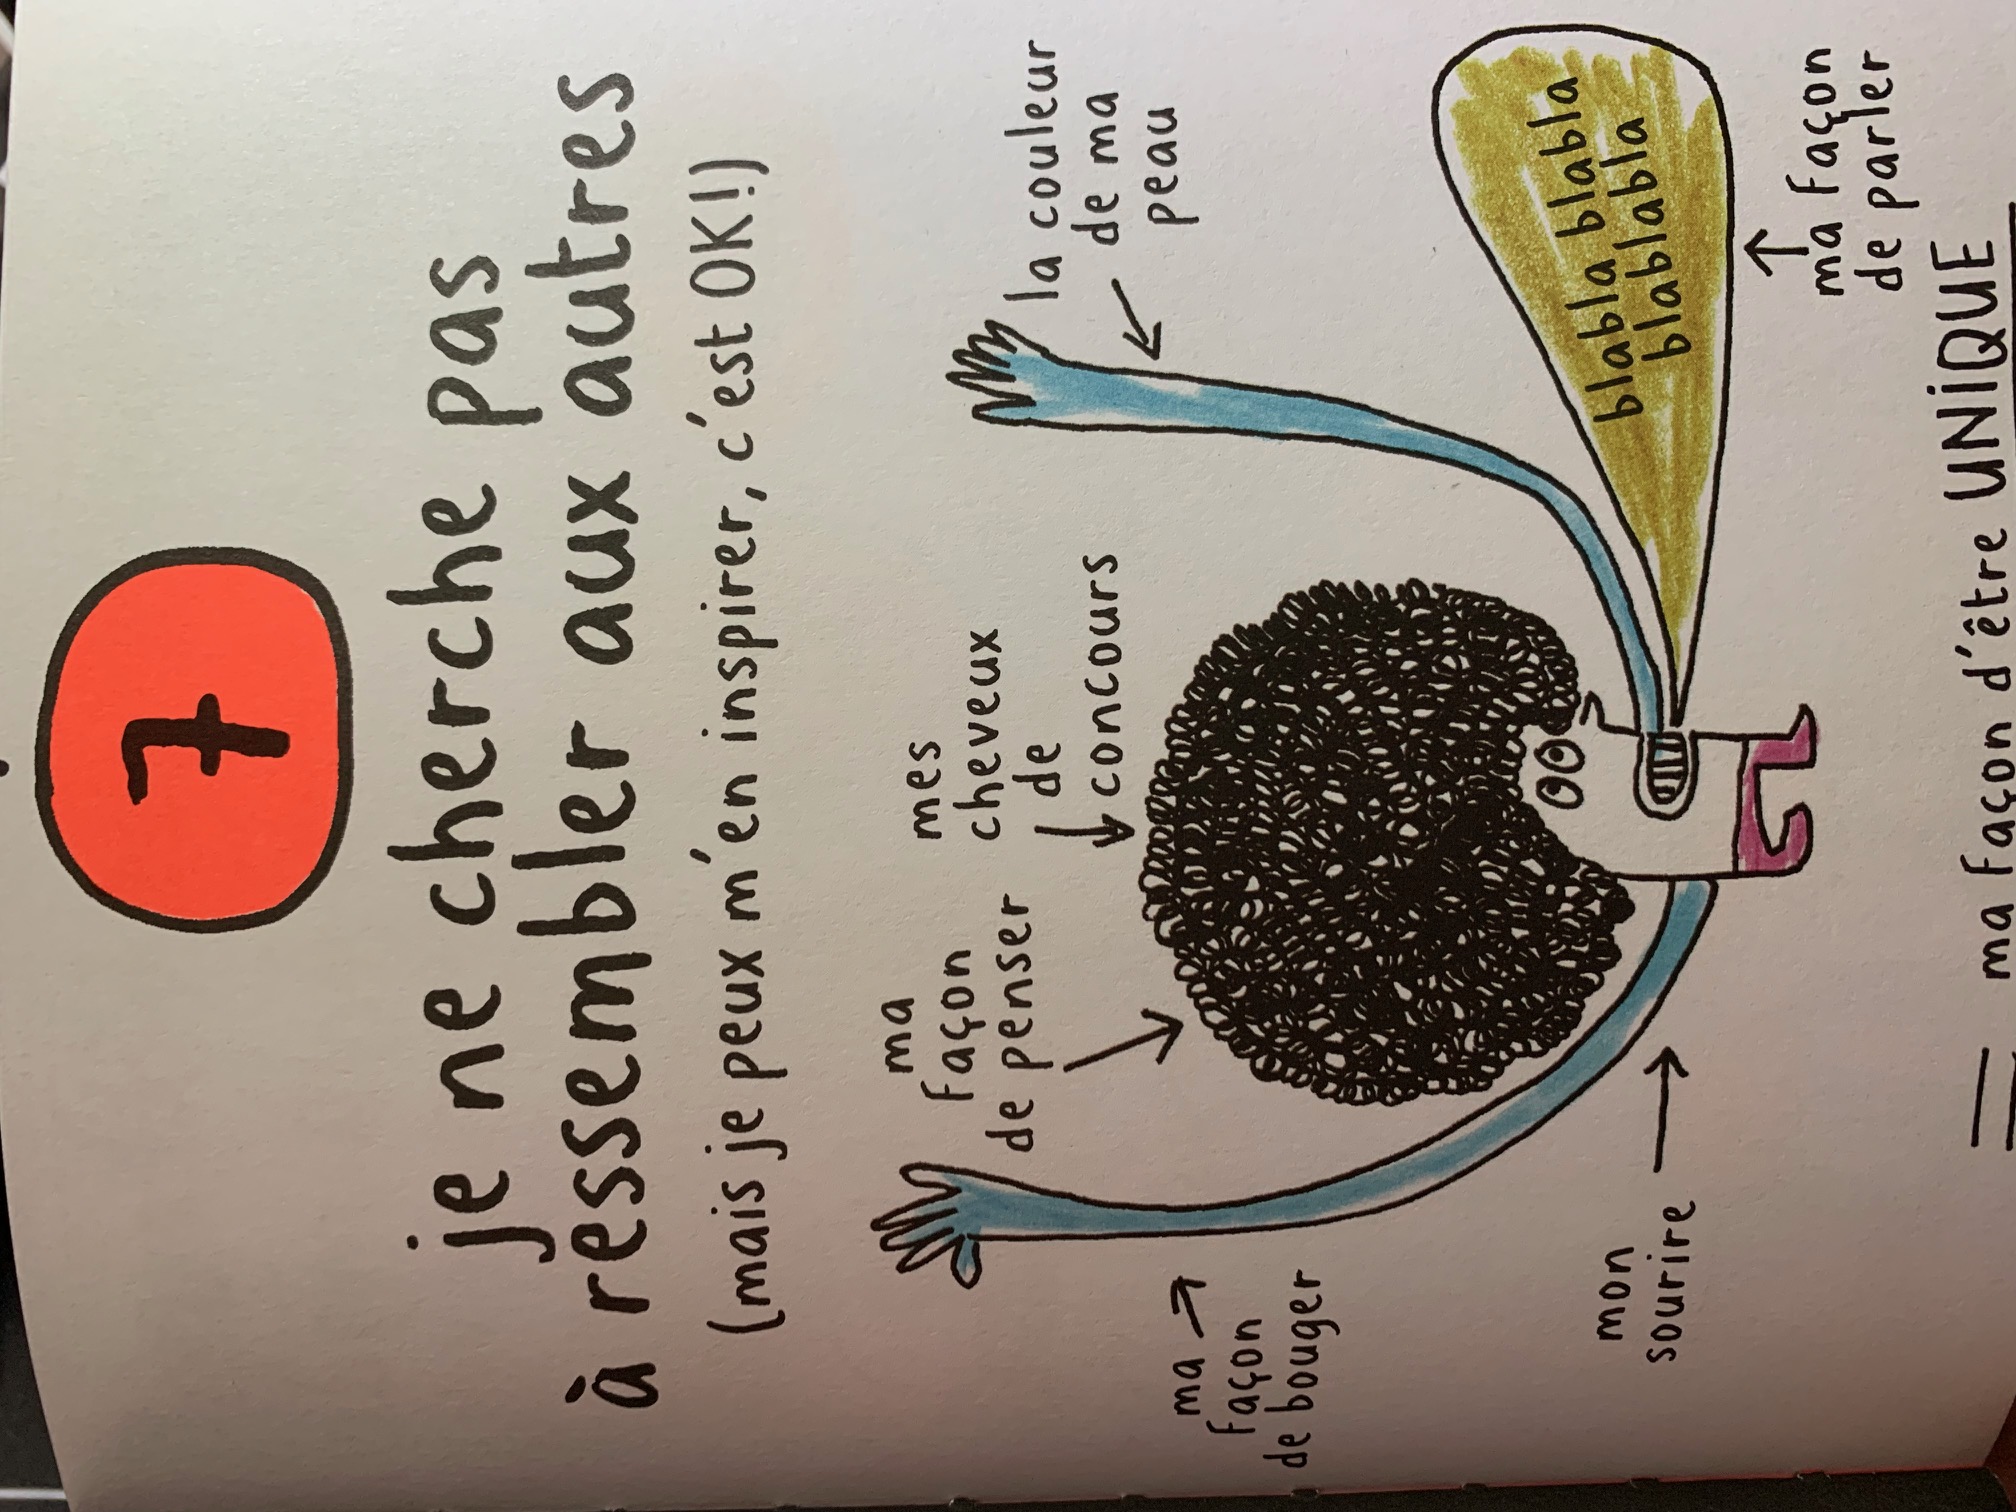 7
je ne cherche pas
à ressembler aux autres
(mais je peux m'en inspirer, c'est OK!)
ma
façon
de penser
mes
cheveux
de
concours
la couleur
de ma
peau
ma
façon
de bouger
blabla blabla
blablabla
mon
sourire
ma façon
de parler
= ma façon d'être UNiQUE